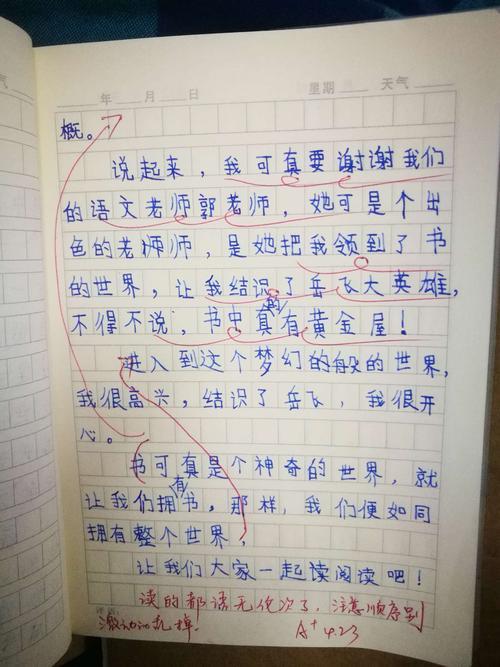 年 月 日 星期 天气
气
概。
说起来，我可真要谢谢我们
的语文老师郭老师，她可是个出
色的老师师，是她把我领到了书
的世界，让我结识了岳飞大英雄，
不得不说，书中真的有黄金屋！
进入到这个梦幻的般的世界，
我很高兴，结识了岳飞，我很开
心。
书可真是个神奇的世界，就
让我们拥有书，那样，我们便如同
拥有整个世界，
让我们大家一起读阅读吧！
读的都语无伦次了，注意顺序别
激动
A+ 4.23